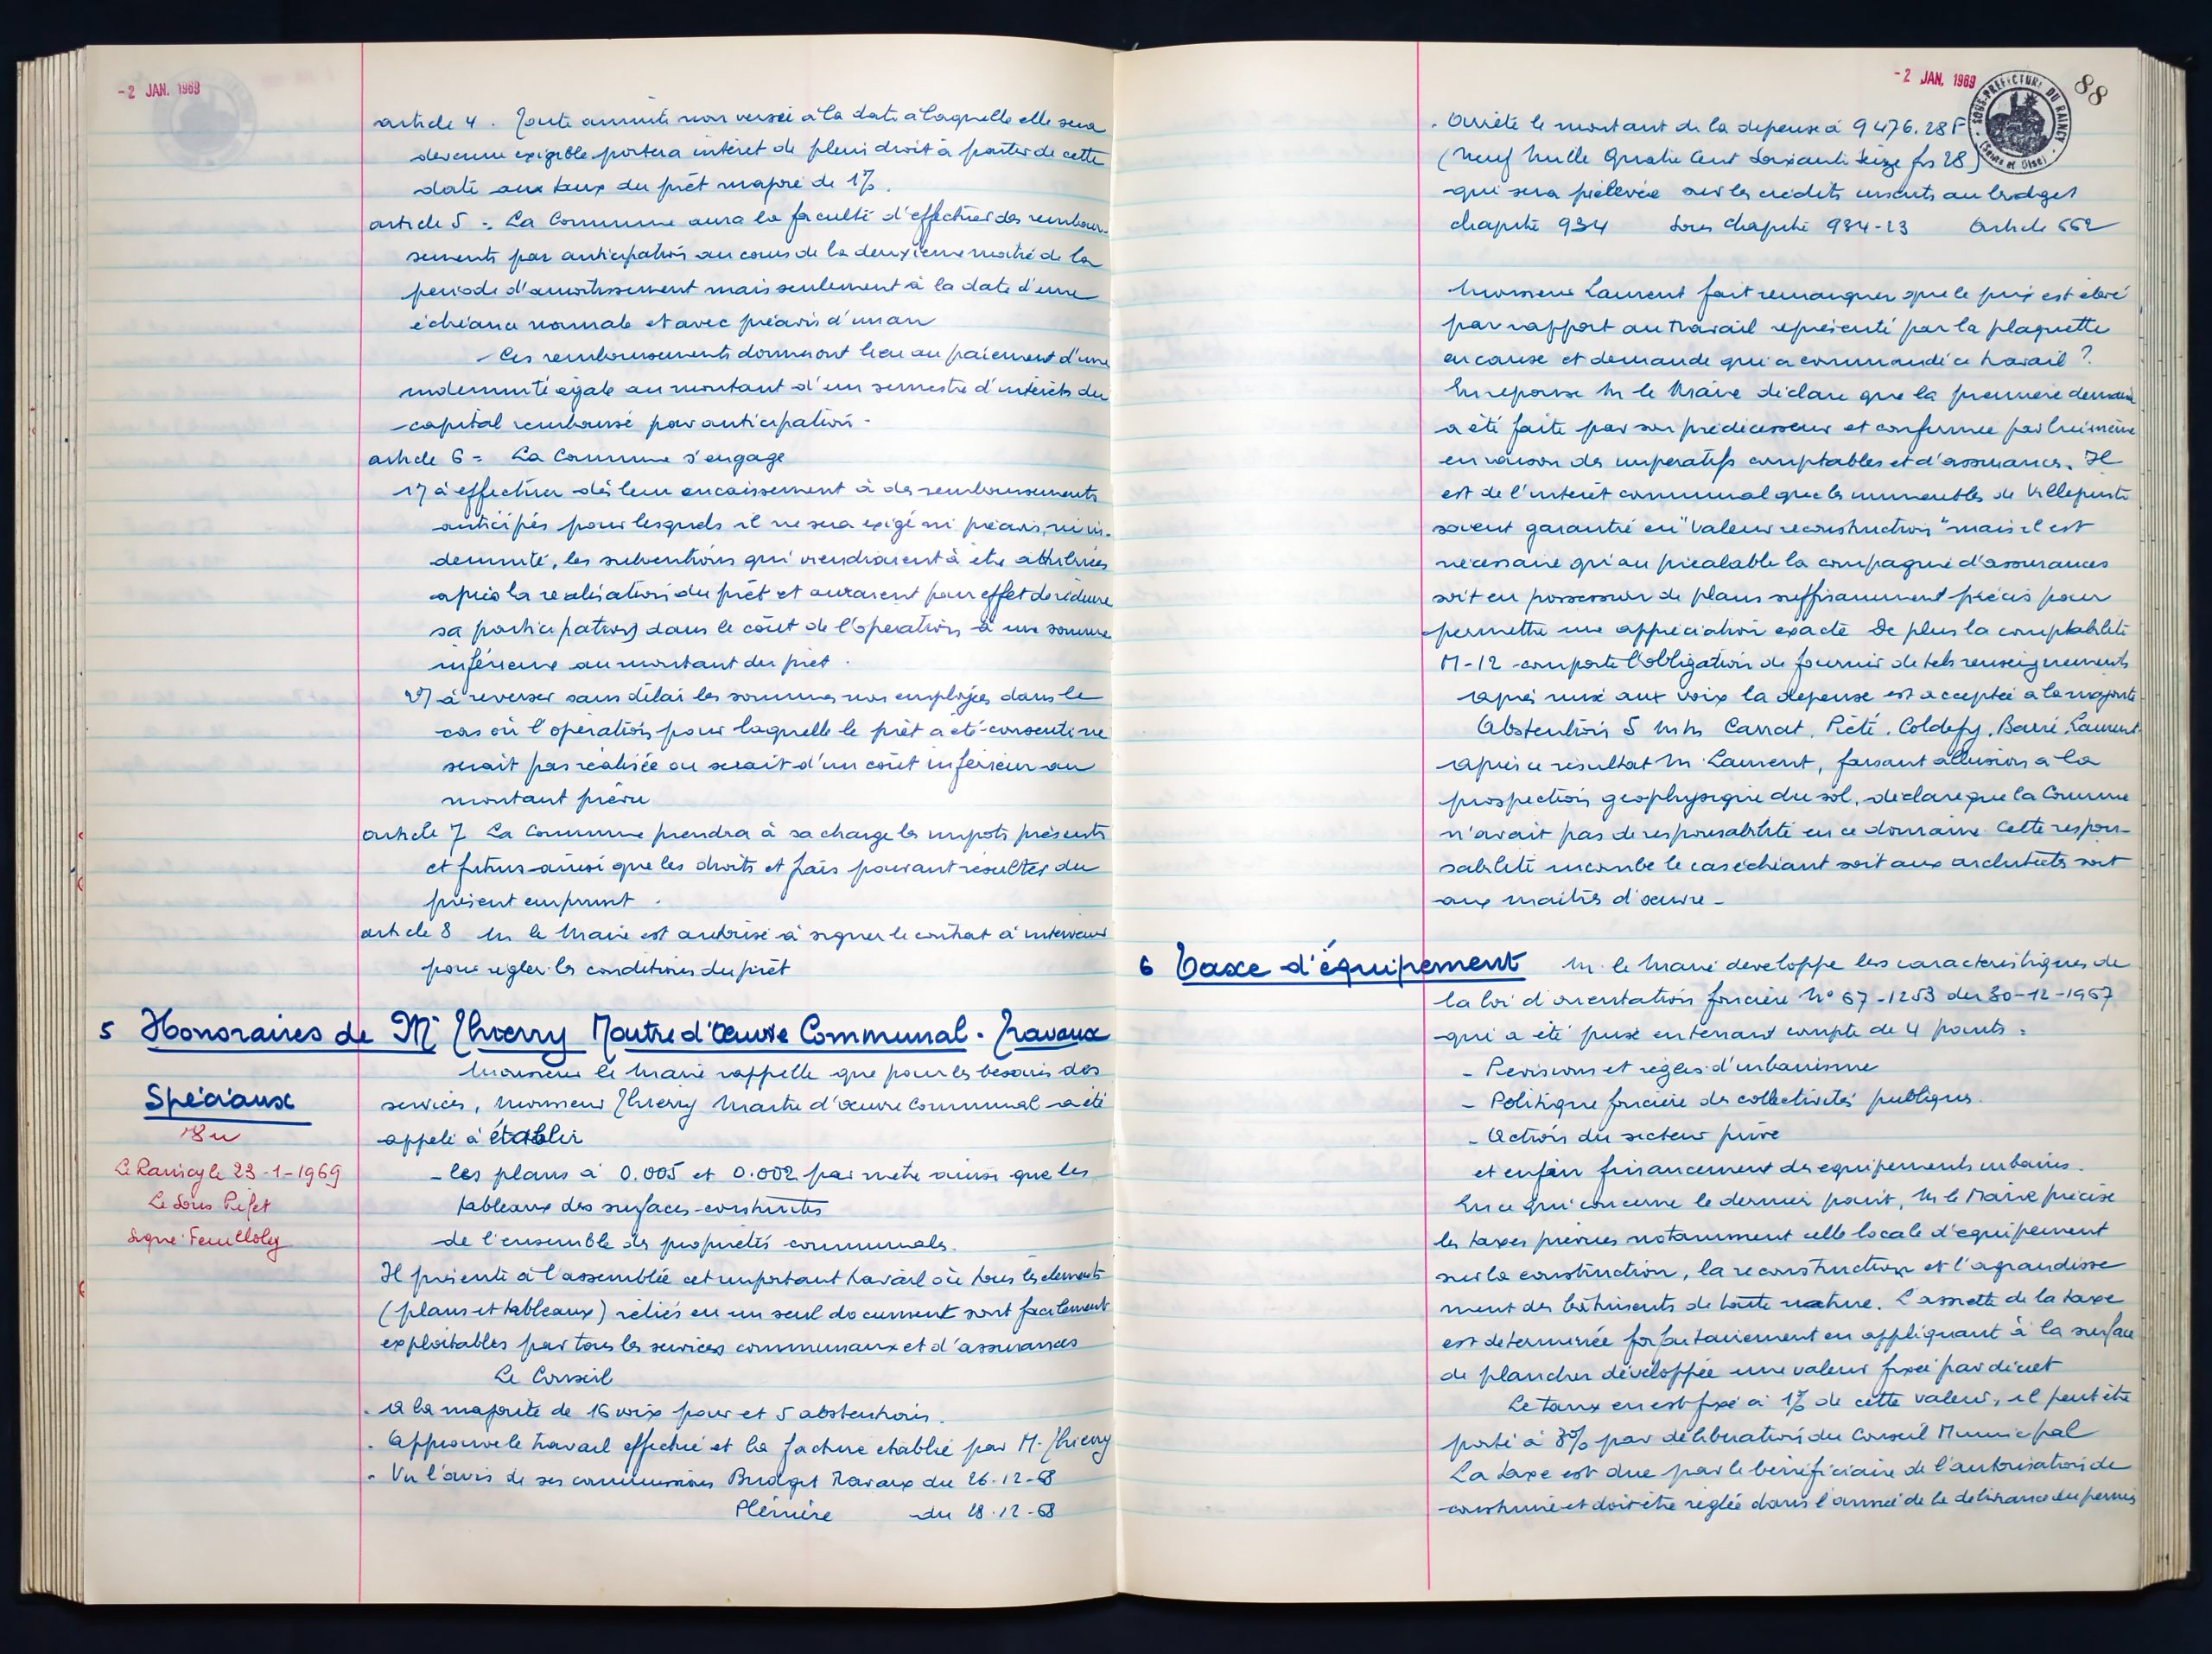 -2 JAN. 1969
article 4. Toute annuité non versée à la date à laquelle elle sera
devenue exigible portera intérêt de plein droit à partir de cette
date aux taux du prêt majoré de 1%.
article 5 = La Commune aura la faculté d'effectuer des rembour-
sements par anticipation au cours de la deuxième moitié de la
période d'amortissement mais seulement à la date d'une
échéance normale et avec préavis d'un an
- Ces remboursements donneront lieu au paiement d'une
indemnité égale au montant d'un semestre d'intérêts du
capital remboursé par anticipation -
article 6 = La Commune s'engage
1°) à effectuer dès leur encaissement à des remboursements
anticipés pour lesquels il ne sera exigé ni préavis, ni in-
demnité, les subventions qui viendraient à être attribuées
après la réalisation du prêt et auraient pour effet de réduire
sa participation dans le coût de l'opération à une somme
inférieure au montant du prêt.
2°) à reverser sans délai les sommes non employées dans le
cas où l'opération pour laquelle le prêt a été consenti ne
serait pas réalisée ou serait d'un coût inférieur au
montant prévu
article 7 La Commune prendra à sa charge les impôts présents
et futurs ainsi que les droits et frais pouvant résulter du
présent emprunt.
article 8 M le Maire est autorisé à signer le contrat à intervenir
pour régler les conditions du prêt
5 Honoraires de Mr Thierry Maitre d'Œuvre Communal - Travaux
Spéciaux
Monsieur le Maire rappelle que pour les besoins des
services, Monsieur Thierry Maitre d'œuvre Communal a été
appelé à établir
Vu
Le Raincy le 23-1-1969
Le Sous Préfet
Signé
- les plans à 0.005 et 0.002 par metre ainsi que les
tableaux des surfaces construites
de l'ensemble des propriétés communales.
Il présente à l'assemblée cet important travail où tous les éléments
(plans et tableaux) reliés en un seul document sont facilement
exploitables par tous les services communaux et d'assurances
Le Conseil
. à la majorité de 16 voix pour et 5 abstentions.
. Approuve le travail effectué et la facture établie par M. Thierry
. Vu l'avis de ses commissions Budget Travaux du 26-12-68
Plénière du 28-12-68
-2 JAN. 1969
SOUS-PRÉFECTURE DU RAINCY
(Seine et Oise)
88
. Arrête le montant de la dépense à 9 476.28 F
(Neuf Mille Quatre Cent Soixante Seize frs 28)
qui sera prélevée sur les crédits inscrits au budget
chapitre 934 Sous chapitre 934-23 Article 662
Monsieur Laurent fait remarquer que le prix est élevé
par rapport au travail représenté par la plaquette
en cause et demande qui a commandé ce travail ?
En réponse M le Maire déclare que la première demande
a été faite par son prédécesseur et confirmée par lui-même
en raison des impératifs comptables et d'assurances. Il
est de l'intérêt communal que les immeubles de Villepinte
soient garantie en "Valeur reconstruction" mais il est
nécessaire qu'au préalable la compagnie d'assurances
soit en possession de plans suffisamment précis pour
permettre une appréciation exacte De plus la comptabilité
M-12 comporte l'obligation de fournir de tels renseignements
après mise aux voix la dépense est acceptée à la majorité
Abstention 5 MM Carrat, Piété, Coldefy, Barré, Laurent.
après ce résultat M. Laurent, faisant allusion à la
prospection géophysique du sol, déclare que la Commune
n'avait pas de responsabilité en ce domaine. Cette respon-
sabilité incombe le cas échéant soit aux architectes soit
aux maitres d'œuvre -
6 Taxe d'équipement M. le Maire développe les caractéristiques de
la loi d'orientation foncière N° 67-1253 du 30-12-1967
qui a été prise en tenant compte de 4 points :
- Révisions et règles d'urbanisme
- Politique foncière des collectivités publiques.
- Action du secteur privé
et enfin financement des équipements urbains.
En ce qui concerne le dernier point, M le Maire précise
les taxes prévues notamment celle locale d'équipement
sur la construction, la reconstruction et l'agrandisse
ment des bâtiments de toute nature. L'assiette de la taxe
est déterminée forfaitairement en appliquant à la surface
de plancher développée une valeur fixée par décret
Le taux en est fixé à 1% de cette valeur, il peut être
porté à 3% par délibération du Conseil Municipal
La taxe est due par le bénéficiaire de l'autorisation de
construire et doit être réglée dans l'année de la délivrance du permis